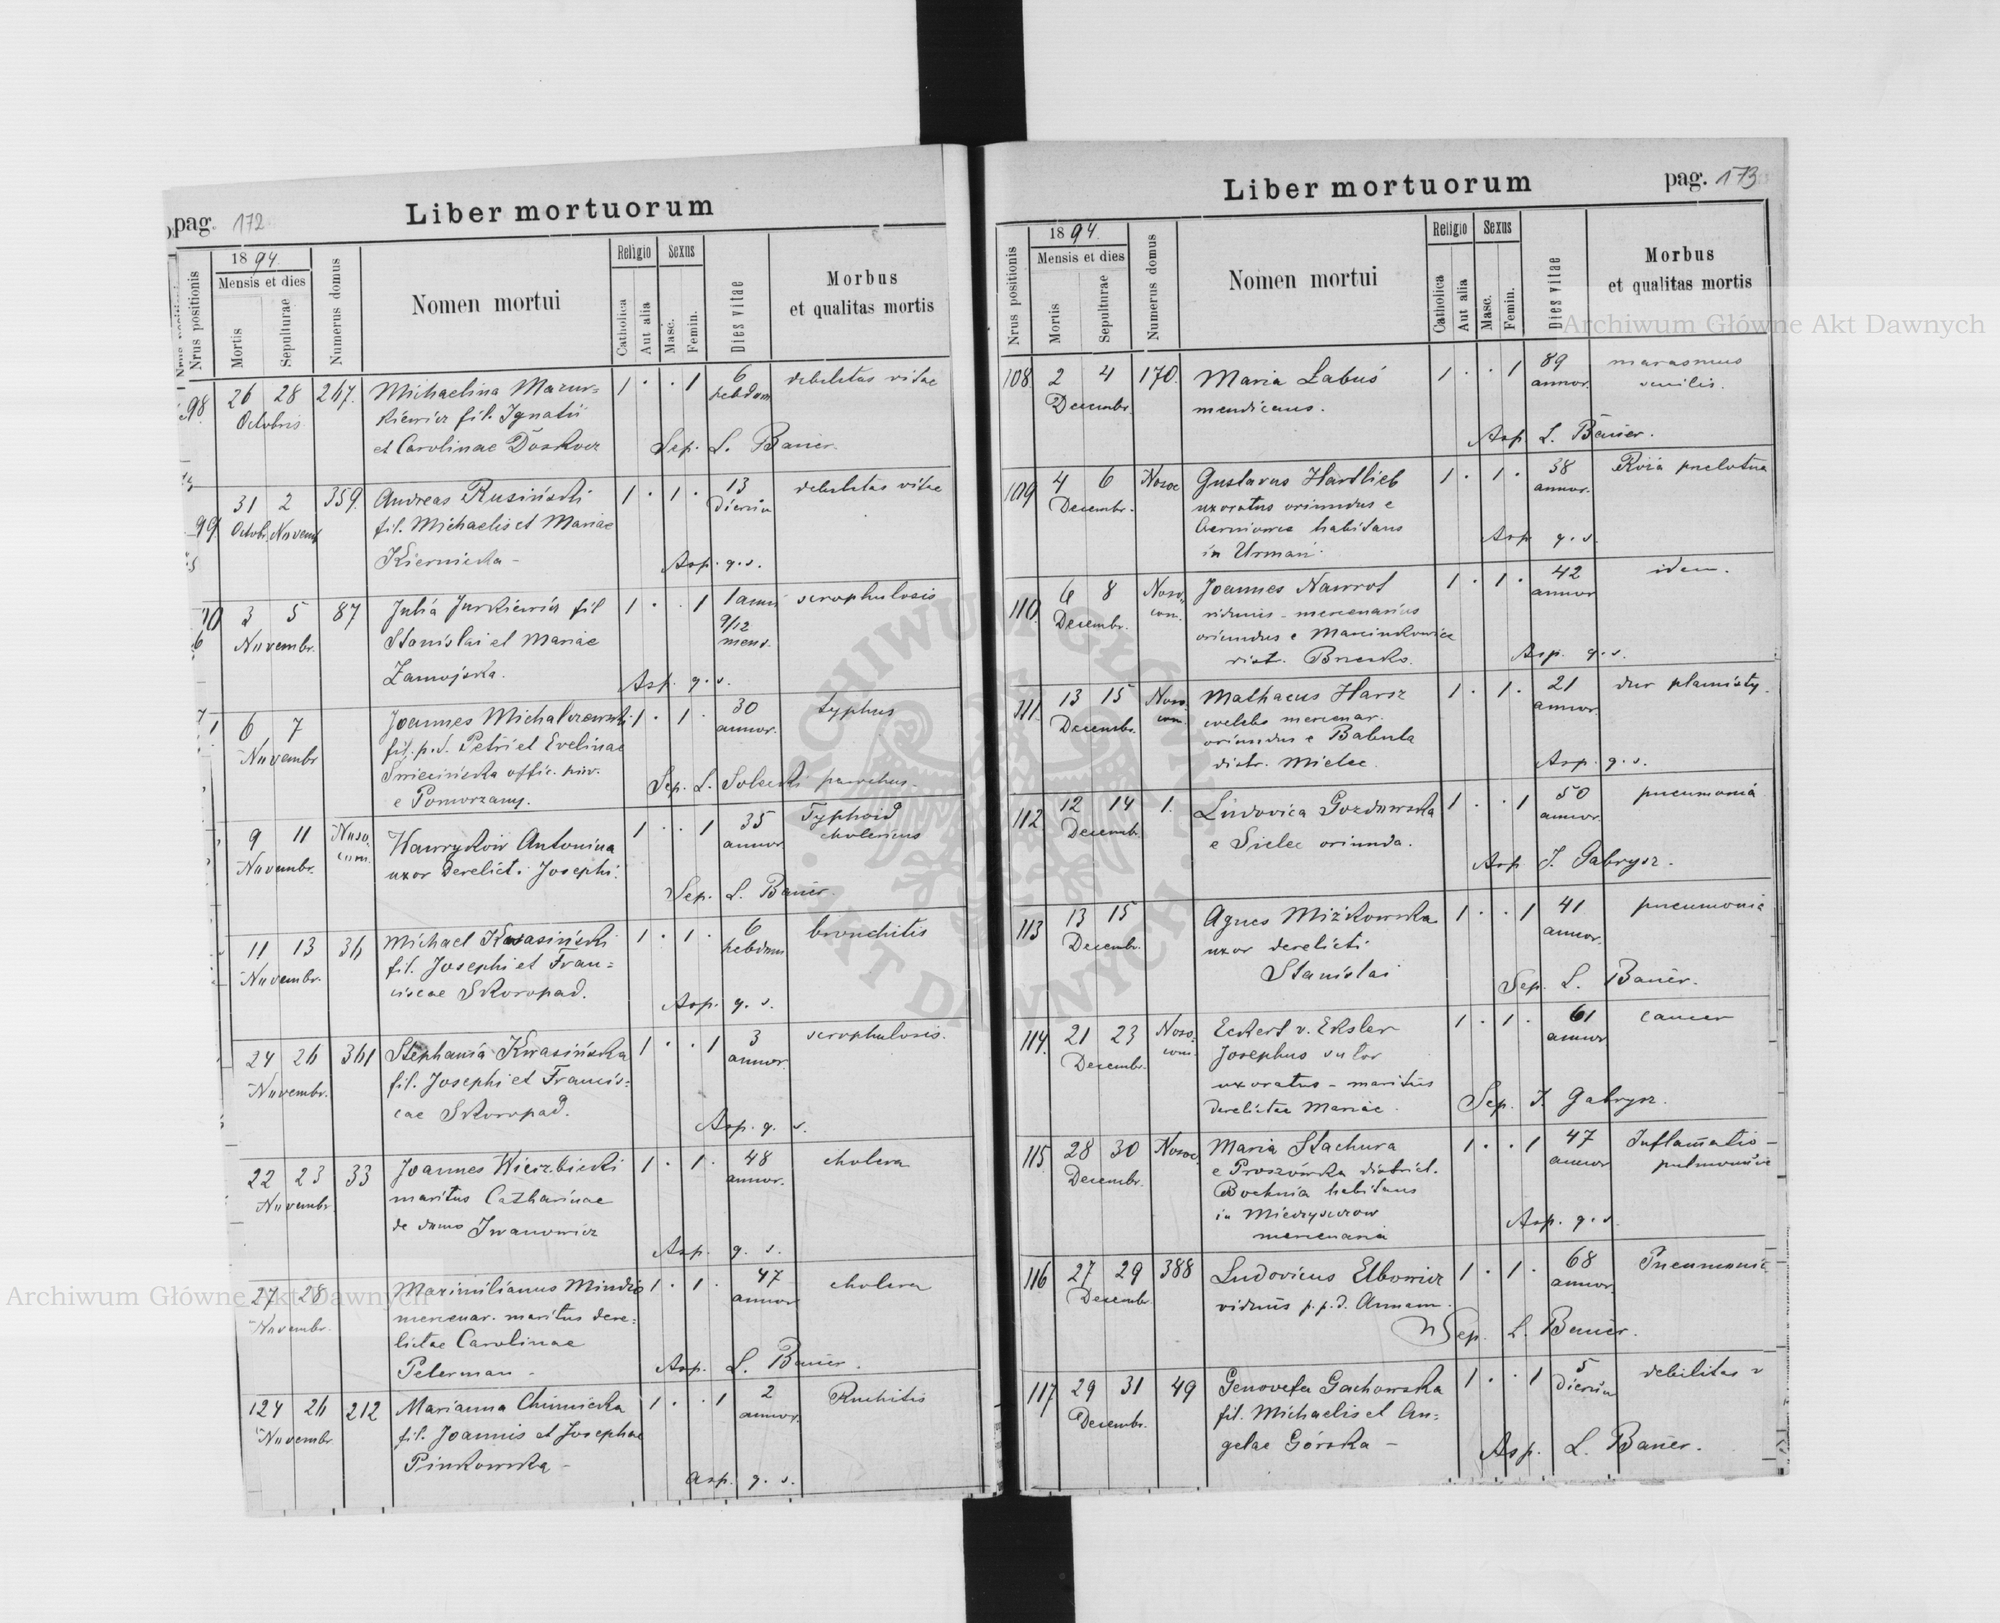 pag. 172
Liber mortuorum
Nrus positionis
1894.
Mensis et dies
Mortis
Sepulturae
Numerus domus
Nomen mortui
Religio
Catholica
Aut alia
Sexus
Masc.
Femin.
Dies vitae
Morbus
et qualitas mortis
98. 26 28 267. Michaelina Mazur= 1 . . 1 6 debilitas vitae
Octobris kiewicz fil. Ignatii hebdom
et Carolinae Doskocz Sep. L. Bauer.
99 31 2 359. Andreas Rusiński 1 . 1 . 13 debilitas vitae
Octobr. Novemb fil. Michaelis et Mariae dierum
Kiernicka - Asp. q. s.
3 5 87 Julia Jurkiewicz fil 1 . . 1 1 anni scrophulosis
Novembr. Stanislai et Mariae 9/12 mens.
Zamojska. Asp. q. s.
6 7 Joannes Michalczewski 1 . 1 . 30 typhus
Novembr fil. p. d. Petri et Evelinae annor.
Święcińska offic. priv. Sep. L. Solecki parochus.
e Pomorzany.
9 11 Noso= Hawryków Antonina 1 . . 1 35 Typhoid
Novembr. com. uxor derelict: Josephi. annor cholericus
Sep. L. Bauer.
11 13 36 Michael Kwasiński 1 . 1 . 6 bronchitis
Novembr. fil. Josephi et Fran= hebdom
ciscae Skoropad. Asp. q. s.
24 26 361 Stephania Kwasińska 1 . . 1 3 scrophulosis.
Novembr. fil. Josephi et Francis= annor.
cae Skoropad. Asp. q. s.
22 23 33 Joannes Wierzbicki 1 . 1 . 48 cholera
Novembr maritus Catharinae annor.
de domo Iwanowicz
Asp. q. s.
27 28 Maximilianus 1 . 1 . 47 cholera
Novembr. mercenar. maritus dere= annor
lictae Carolinae
Peterman - Asp. L. Bauer.
24 26 212 Marianna Chimnicka 1 . . 1 2 Rachitis
Novembr fil. Joannis et Josephae annor.
Pinkowska - Asp. q. s.
Liber mortuorum
pag. 173
Nrus positionis
1894.
Mensis et dies
Mortis
Sepulturae
Numerus domus
Nomen mortui
Religio
Catholica
Aut alia
Sexus
Masc.
Femin.
Dies vitae
Morbus
et qualitas mortis
108 2 4 170. Maria Łabuś 1 . . 1 89 marasmus
Decembr. mendicans. annor. senilis.
Asp L. Bauer.
109 4 6 Nosoc Gustavus Hartlieb 1 . 1 . 38
Decembr. uxoratus oriundus e annor.
habitans Asp q. s.
in Urmań.
110. 6 8 Noso= Joannes Nawrot 1 . 1 . 42 idem.
Decembr. com. viduus - mercenarius annor
oriundus e Marcinkowice
dist. Brzesko. Asp. q. s.
111. 13 15 Noso= Mathaeus Harsz 1 . 1 . 21 dur plamisty.
Decembr. com. coelebs mercenar. annor.
oriundus e Babula
distr. Mielec. Asp. q. s.
112 12 14 1. Ludovica Gozdowska 1 . . 1 50 pneumonia
Decemb. e Sielec oriunda. annor.
Asp J. Gabrysz.
113 13 15 Agnes Mizkowska 1 . . 1 41 pneumonia
Decembr. uxor derelicti annor.
Stanislai Sep. L. Bauer.
114. 21 23 Noso= Eckert v. Eksler 1 . 1 . 61 cancer
Decembr. com. Josephus sutor annor
uxoratus - maritus
derelictae Mariae. Sep. J. Gabrysz.
115. 28 30 Nosoc. Maria Stachura 1 . . 1 47 Inflamatio -
Decembr. e Proszówka district. annor pulmonum
Bochnia habitans
in Mieczyszczow Asp. q. s.
mercenaria
116 27 29 388 Ludovicus Elbowicz 1 . 1 . 68 Pneumonia
Decembr. viduus p. p. d. Annam. annor.
Sep. L. Bauer.
117 29 31 49 Genovefa Gachowska 1 . . 1 5 debilitas v
Decembr. fil. Michaelis et An= dierum
gelae Górska - Asp. L. Bauer.
Archiwum Główne Akt Dawnych
Archiwum Główne Akt Dawnych
ARCHIWUM GŁÓWNE AKT DAWNYCH